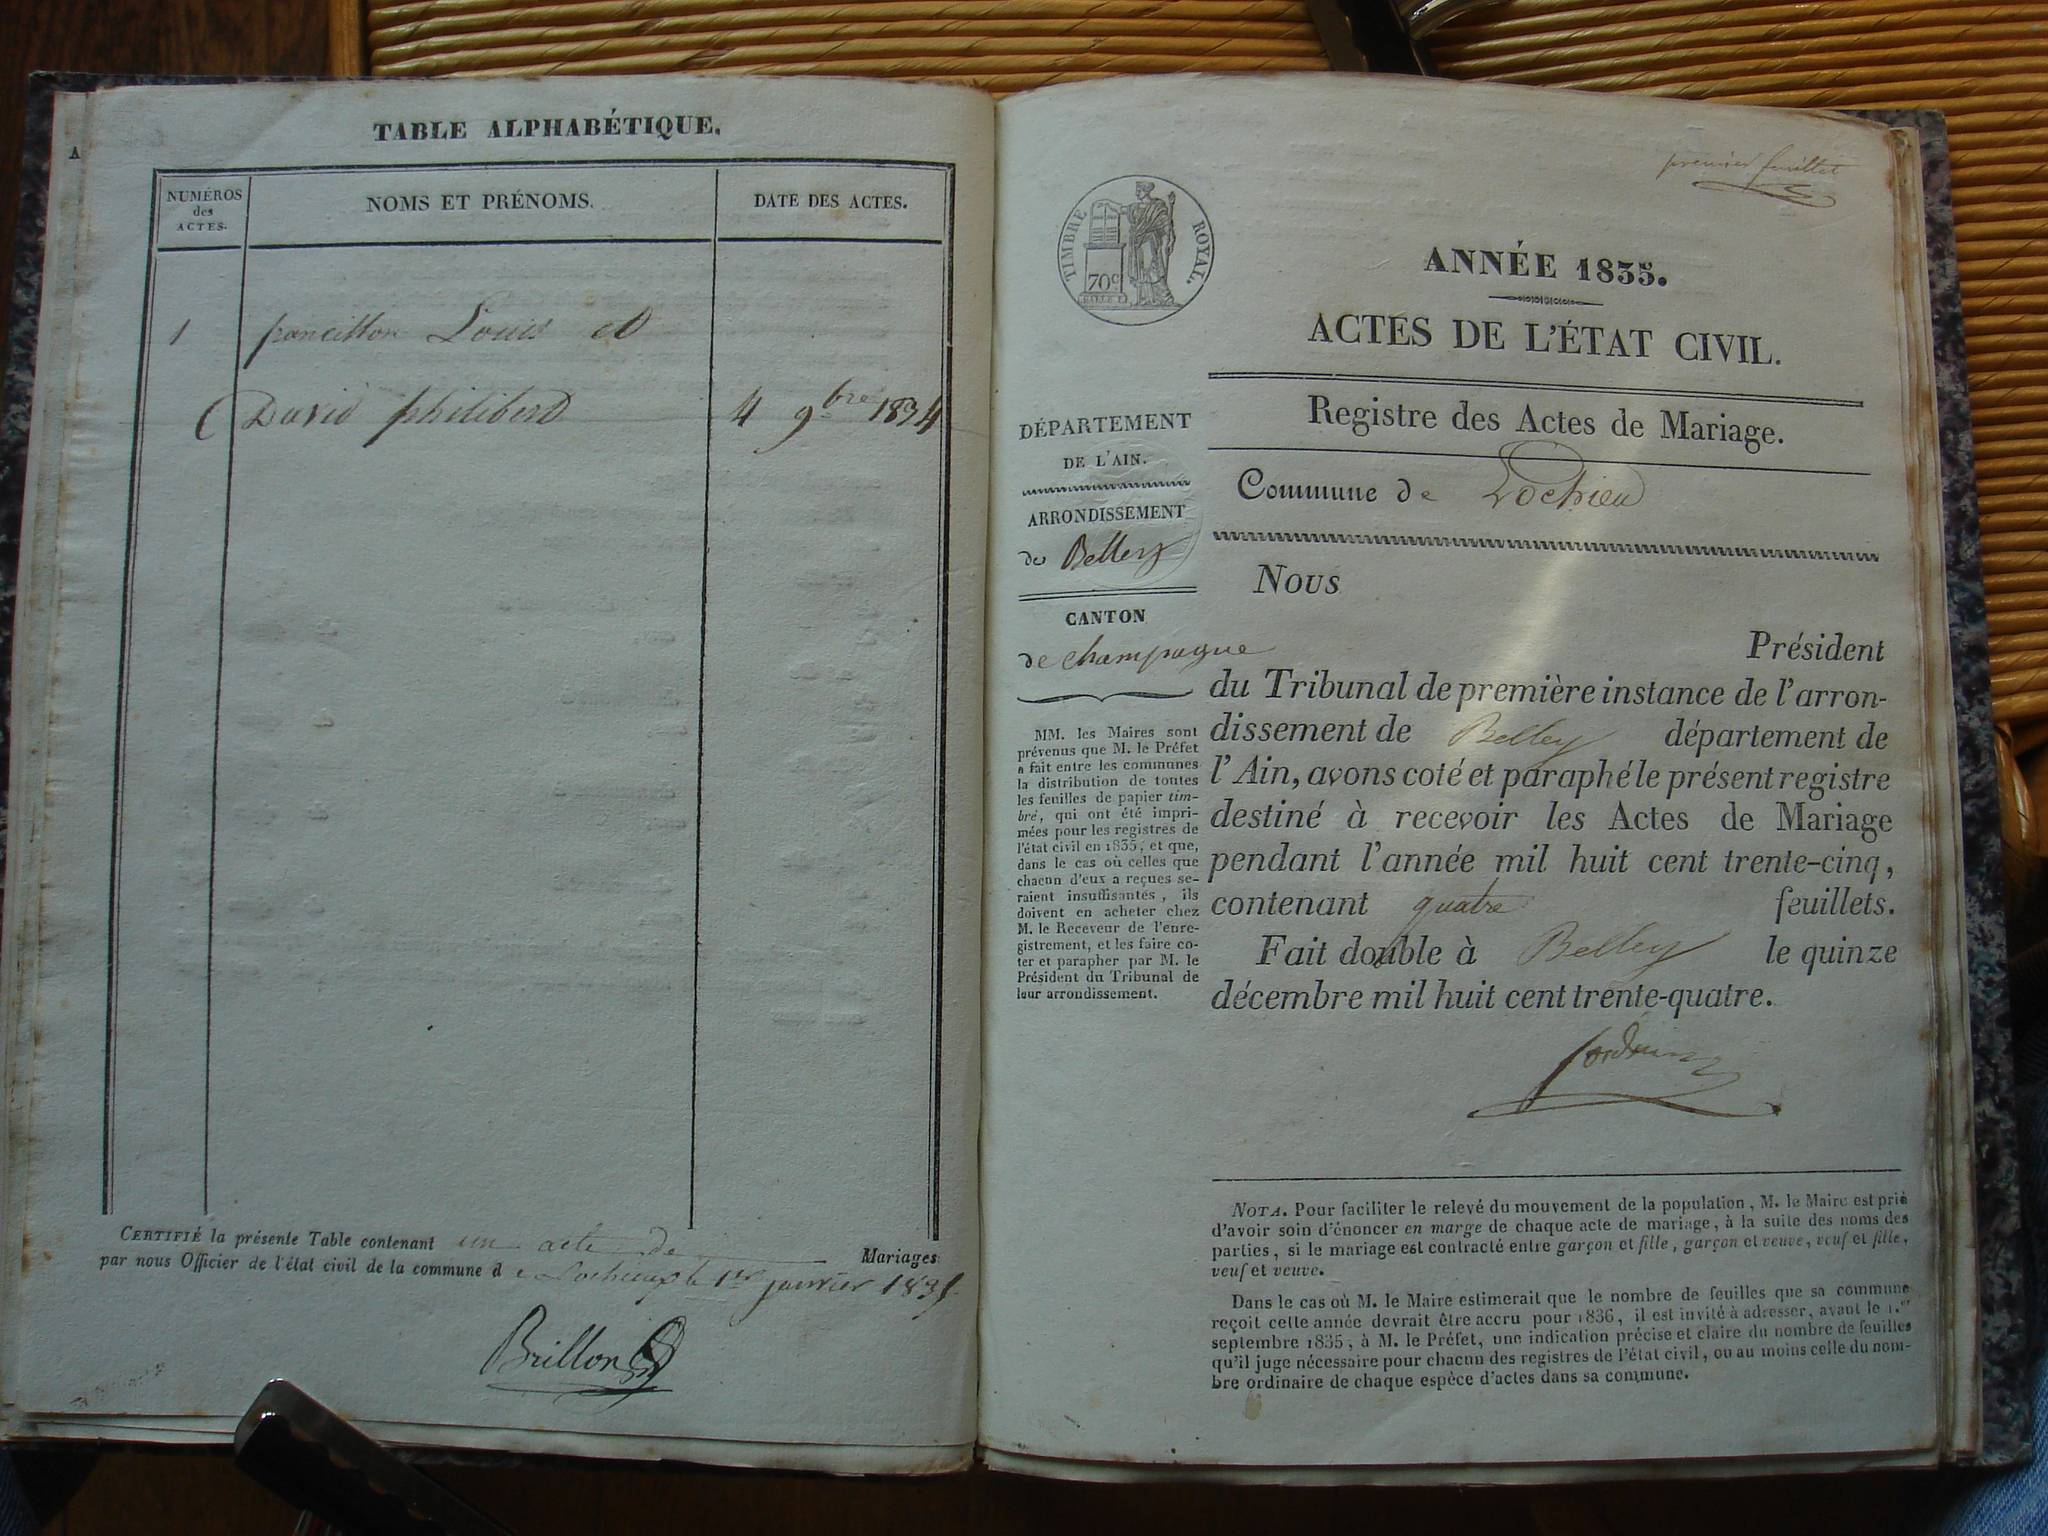 TABLE ALPHABÉTIQUE.
A
NUMÉROS
des
ACTES.
NOMS ET PRÉNOMS.
DATE DES ACTES.
1 francillon Louis et
David philibert 4 9bre 1834
CERTIFIÉ la présente Table contenant un acte de Mariages
par nous Officier de l'état civil de la commune de Lochieu le 1er janvier 1835
Brillon
premier feuillet
TIMBRE ROYAL.
70c
ANNÉE 1835.
ACTES DE L'ÉTAT CIVIL.
Registre des Actes de Mariage.
Commune de Lochieu
DÉPARTEMENT
DE L'AIN.
ARRONDISSEMENT
de Belley
CANTON
de champagne
MM. les Maires sont
prévenus que M. le Préfet
a fait entre les communes
la distribution de toutes
les feuilles de papier tim-
bré, qui ont été impri-
mées pour les registres de
l'état civil en 1835, et que,
dans le cas où celles que
chacun d'eux a reçues se-
raient insuffisantes, ils
doivent en acheter chez
M. le Receveur de l'enre-
gistrement, et les faire co-
ter et parapher par M. le
Président du Tribunal de
leur arrondissement.
Nous
Président
du Tribunal de première instance de l'arron-
dissement de Belley département de
l'Ain, avons coté et paraphé le présent registre
destiné à recevoir les Actes de Mariage
pendant l'année mil huit cent trente-cinq,
contenant quatre feuillets.
Fait double à Belley le quinze
décembre mil huit cent trente-quatre.
NOTA. Pour faciliter le relevé du mouvement de la population, M. le Maire est prié
d'avoir soin d'énoncer en marge de chaque acte de mariage, à la suite des noms des
parties, si le mariage est contracté entre garçon et fille, garçon et veuve, veuf et fille,
veuf et veuve.
Dans le cas où M. le Maire estimerait que le nombre de feuilles que sa commune
reçoit cette année devrait être accru pour 1836, il est invité à adresser, avant le 1.er
septembre 1835, à M. le Préfet, une indication précise et claire du nombre de feuilles
qu'il juge nécessaire pour chacun des registres de l'état civil, ou au moins celle du nom-
bre ordinaire de chaque espèce d'actes dans sa commune.